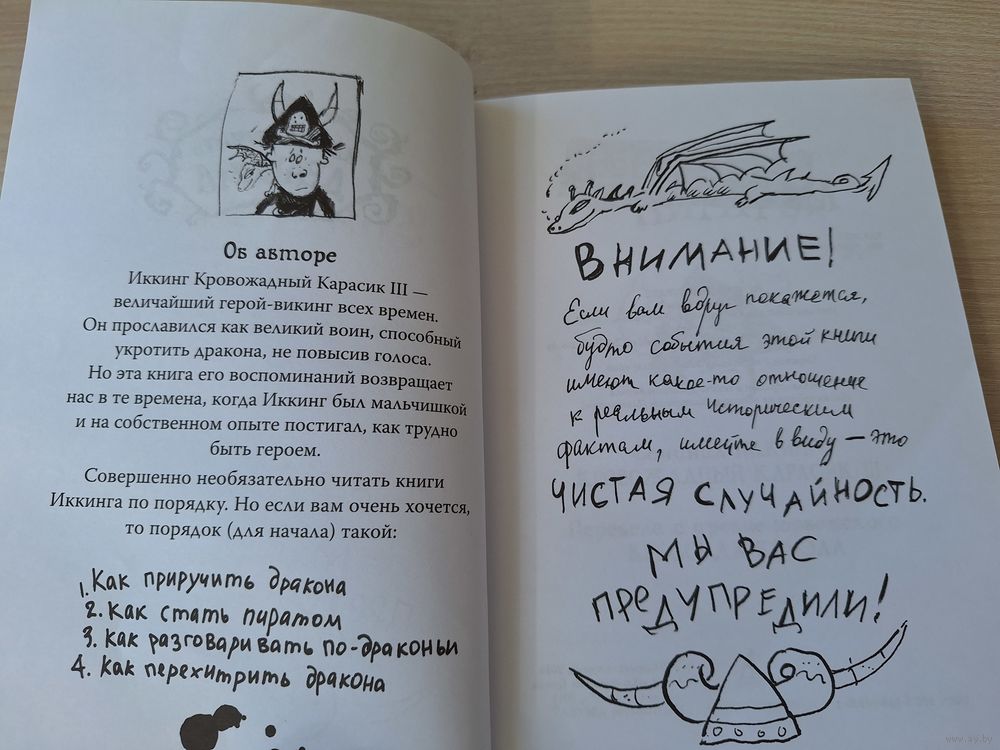 Об авторе
Иккинг Кровожадный Карасик III —
величайший герой-викинг всех времен.
Он прославился как великий воин, способный
укротить дракона, не повысив голоса.
Но эта книга его воспоминаний возвращает
нас в те времена, когда Иккинг был мальчишкой
и на собственном опыте постигал, как трудно
быть героем.
Совершенно необязательно читать книги
Иккинга по порядку. Но если вам очень хочется,
то порядок (для начала) такой:
1. Как приручить дракона
2. Как стать пиратом
3. Как разговаривать по-драконьи
4. Как перехитрить дракона
ВНИМАНИЕ!
Если вам вдруг покажется,
будто события этой книги
имеют какое-то отношение
к реальным историческим
фактам, имейте в виду — это
ЧИСТАЯ СЛУЧАЙНОСТЬ.
МЫ ВАС
ПРЕДУПРЕДИЛИ!
www.ay.by